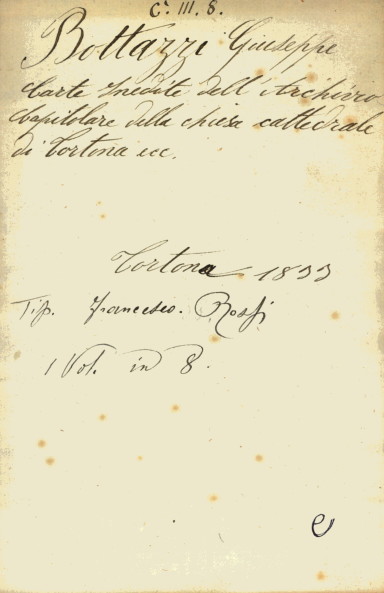 C. III. 8.
Bottazzi Giuseppe
Carte Inedite dell'Archivio
capitolare della chiesa cattedrale
di Tortona ecc.
Tortona 1833
Tip. Francesco. Rossi
1 Vol. in 8.
e